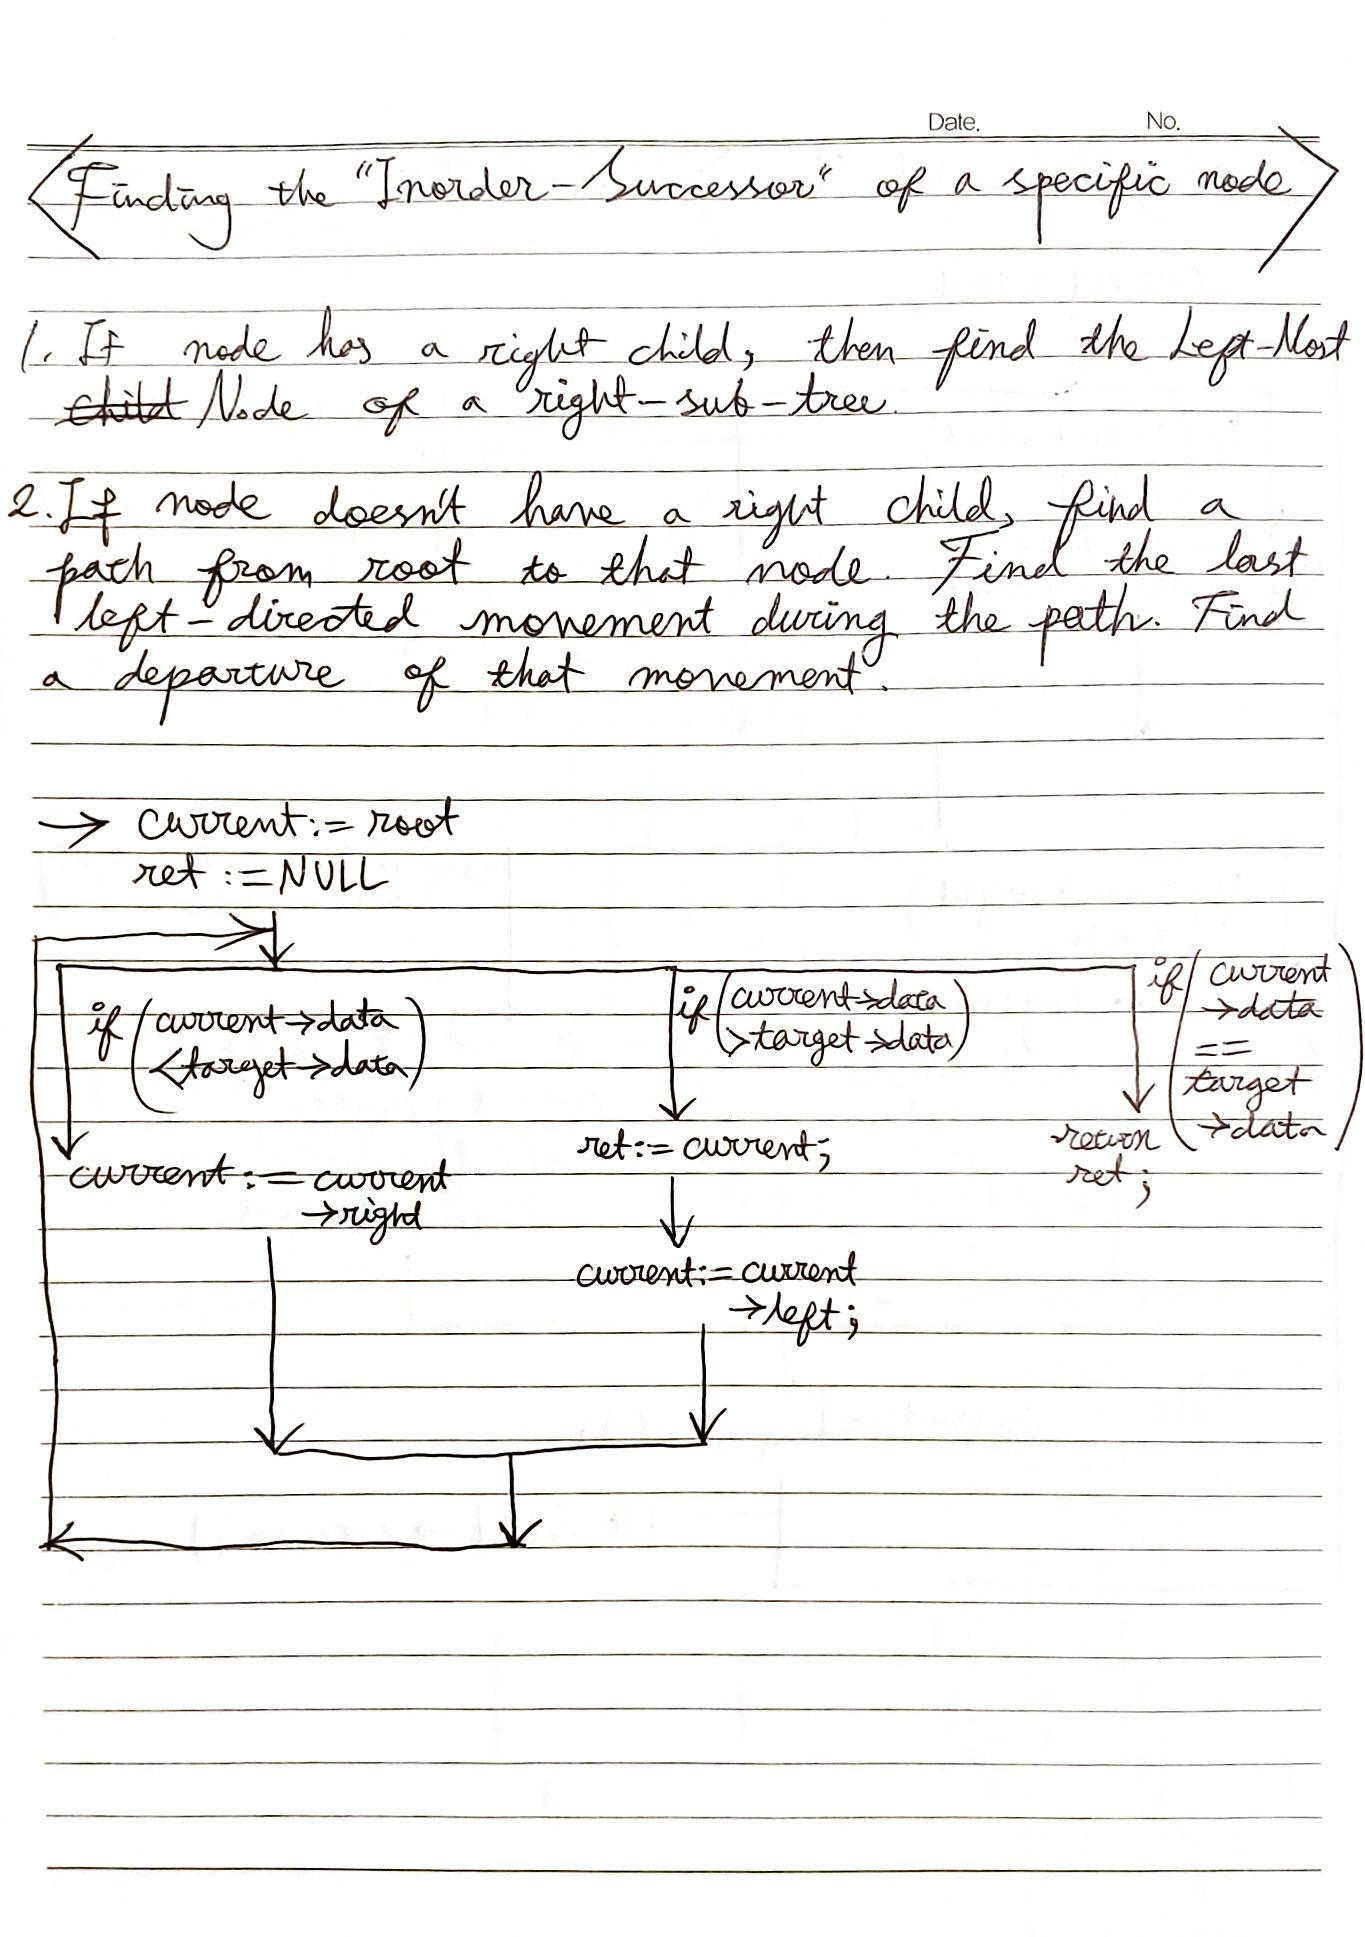 Date. No.
Finding the "Inorder-Successor" of a specific node
1. If node has a right child, then find the Left-Most
child Node of a right-sub-tree.
2. If node doesn't have a right child, find a
path from root to that node. Find the last
left-directed movement during the path. Find
a departure of that movement.
→ current := root
ret := NULL
if (current→data
<target→data)
current := current
→right
if (current→data
>target→data)
ret := current;
current := current
→left;
if (current
→data
==
target
→data)
return
ret;